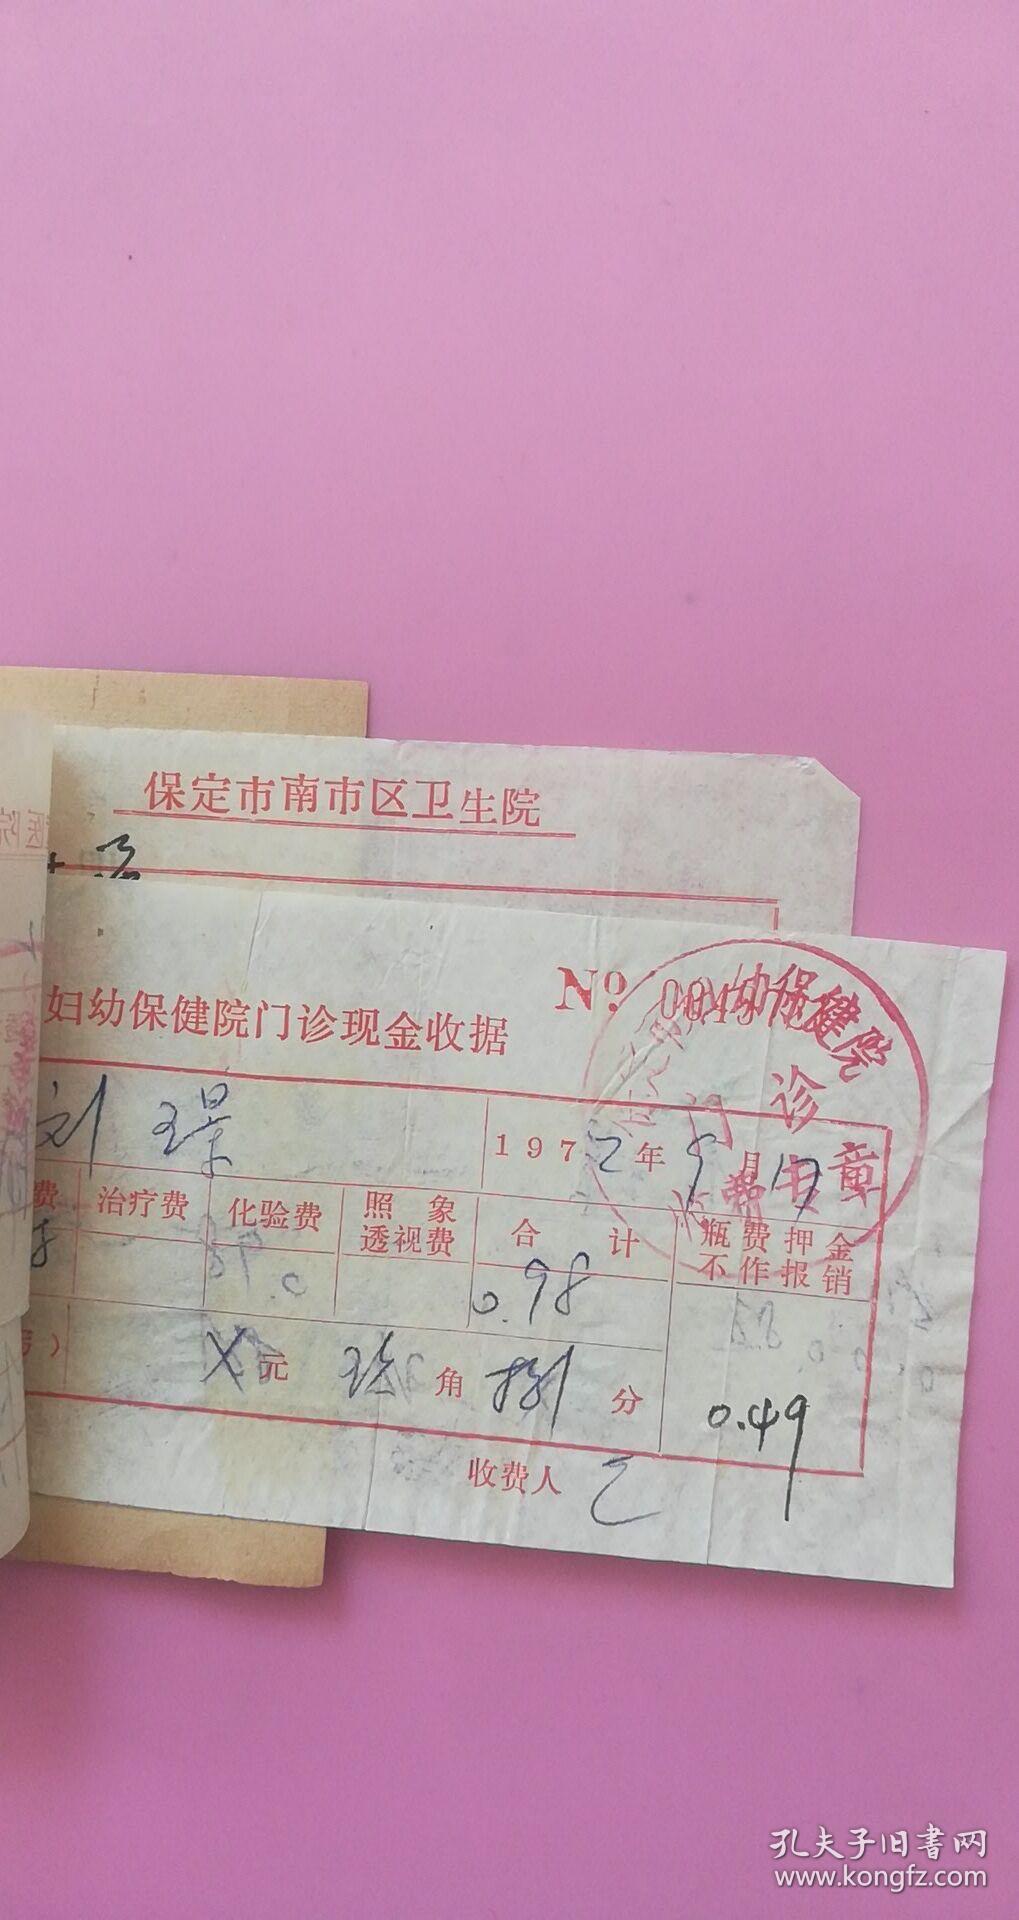 保定市南市区卫生院
妇幼保健院门诊现金收据
Nº
幼保健院
门诊
章
刘璟
1972年9月17
费 治疗费 化验费 照象透视费 合计 瓶费押金不作报销
0.98
元 玖 角 捌 分
0.49
收费人
孔夫子旧书网
www.kongfz.com